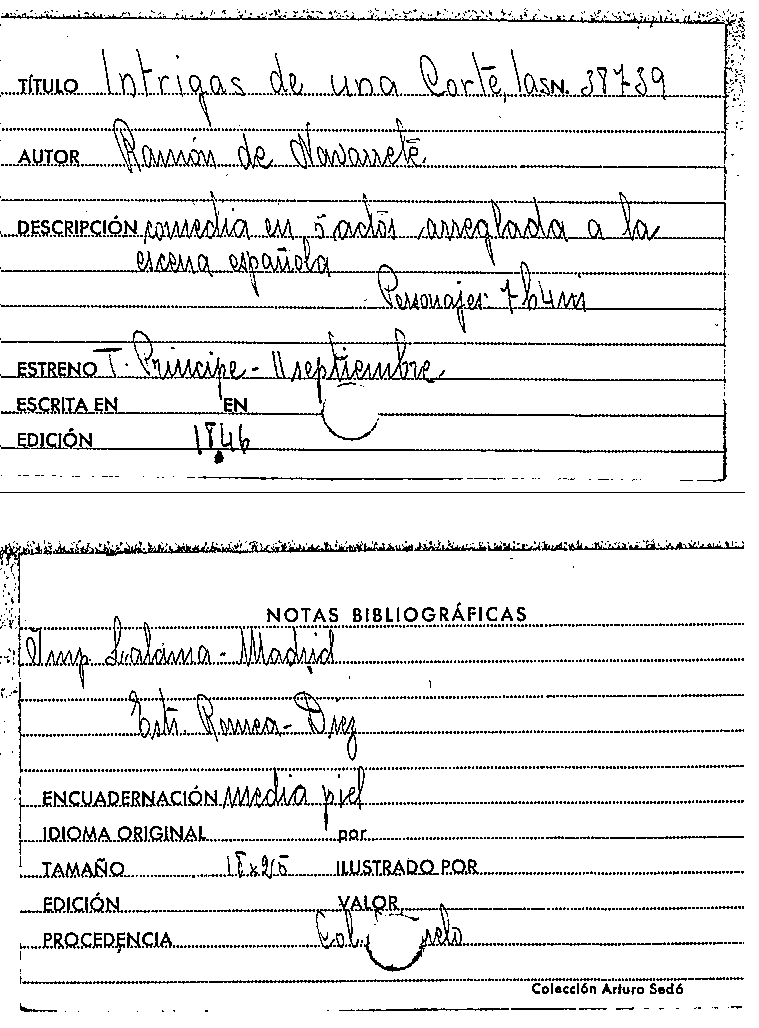 TÍTULO Intrigas de una Corte, las N. 38739
AUTOR Ramón de Navarrete
DESCRIPCIÓN comedia en 5 actos arreglada a la
escena española
Personajes: 7h 4m
ESTRENO T. Principe - 11 septiembre
ESCRITA EN EN
EDICIÓN 1846
NOTAS BIBLIOGRÁFICAS
Imp. Lalama - Madrid
Estr. Romea - Diez
ENCUADERNACIÓN media piel
IDIOMA ORIGINAL por
TAMAÑO ILUSTRADO POR
EDICIÓN VALOR
PROCEDENCIA Col.
Colección Arturo Sedó